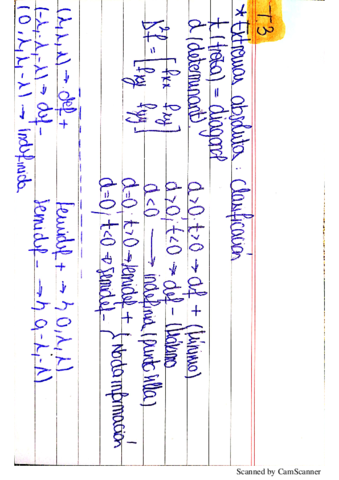 T.3
* Extremos absolutos: Clasificación
t (traza) = diagonal
d (determinant).
D²f = [ fxx fxy
fxy fyy ]
d>0; t>0 → def + (Mínimo)
d>0; t<0 → def - (Máximo)
d<0 → indefinida (punto silla)
d=0; t>0 → semidef +
d=0; t<0 → semidef -
} No da información
(λ, λ, λ) → def +
(-λ, -λ, -λ) → def -
(0, λ, λ, -λ) → Indefinida
semidef + → 0, λ, λ)
semidef - → 0, -λ, -λ)
Scanned by CamScanner